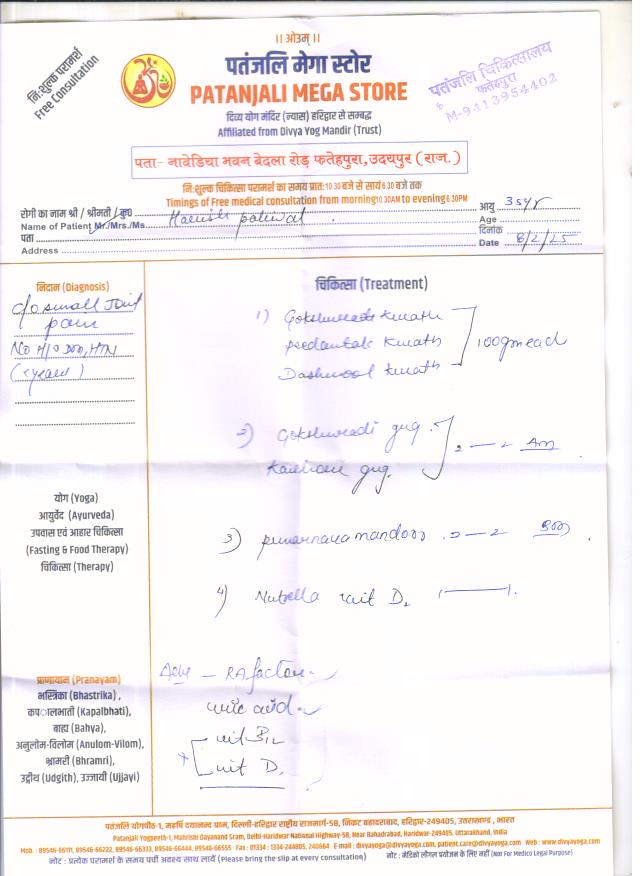 ।। ओ३म् ।।
नि:शुल्क परामर्श
Free Consultation
पतंजलि मेगा स्टोर
PATANJALI MEGA STORE
दिव्य योग मंदिर (न्यास) हरिद्वार से सम्बद्ध
Affiliated from Divya Yog Mandir (Trust)
पतंजलि चिकित्सालय
फतेहपुरा
M-9413954402
पता- नावेडिया भवन बेदला रोड़ फतेहपुरा, उदयपुर (राज.)
नि:शुल्क चिकित्सा परामर्श का समय प्रात: 10:30 बजे से सायं 6:30 बजे तक
Timings of Free medical consultation from morning 10:30AM to evening 6:30PM
रोगी का नाम श्री / श्रीमती / कु०
Name of Patient Mr./Mrs./Ms. paliwal
आयु 35yr
Age
पता
Address
दिनांक
Date 8/2/25
निदान (Diagnosis)
c/o small Joint
pain
No H/O DM, HTN
चिकित्सा (Treatment)
1) Gokshuradi kwath
peedantak kwath
Dashmool kwath
100gm each
2) Gokshuradi gug.
Kaishore gug.
2 — 2
3) punarnava mandoor 2 — 2
4) Nutrella vit D2
योग (Yoga)
आयुर्वेद (Ayurveda)
उपवास एवं आहार चिकित्सा
(Fasting & Food Therapy)
चिकित्सा (Therapy)
Adv — RA factor
uric acid
vit B12
vit D
प्राणायाम (Pranayam)
भस्त्रिका (Bhastrika) ,
कपालभाती (Kapalbhati),
बाह्य (Bahya),
अनुलोम-विलोम (Anulom-Vilom),
भ्रामरी (Bhramri),
उद्गीथ (Udgith), उज्जायी (Ujjayi)
पतंजलि योगपीठ-1, महर्षि दयानन्द ग्राम, दिल्ली-हरिद्वार राष्ट्रीय राजमार्ग-58, निकट बहादराबाद, हरिद्वार-249405, उत्तराखण्ड , भारत
Patanjali Yogpeeth-1, Mahrishi Dayanand Gram, Delhi-Haridwar National Highway-58, Near Bahadrabad, Haridwar-249405, Uttarakhand, India
Mob. : 89546-66111, 89546-66222, 89546-66333, 89546-66444, 89546-66555 Fax : 01334 : 1334-244805, 240664 E-mail : divyayoga@divyayoga.com, patient.care@divyayoga.com Web : www.divyayoga.com
नोट : प्रत्येक परामर्श के समय पर्ची अवश्य साथ लायें (Please bring the slip at every consultation)
नोट : मेडिको लीगल प्रयोजन के लिए नहीं (Not For Medico Legal Purpose)